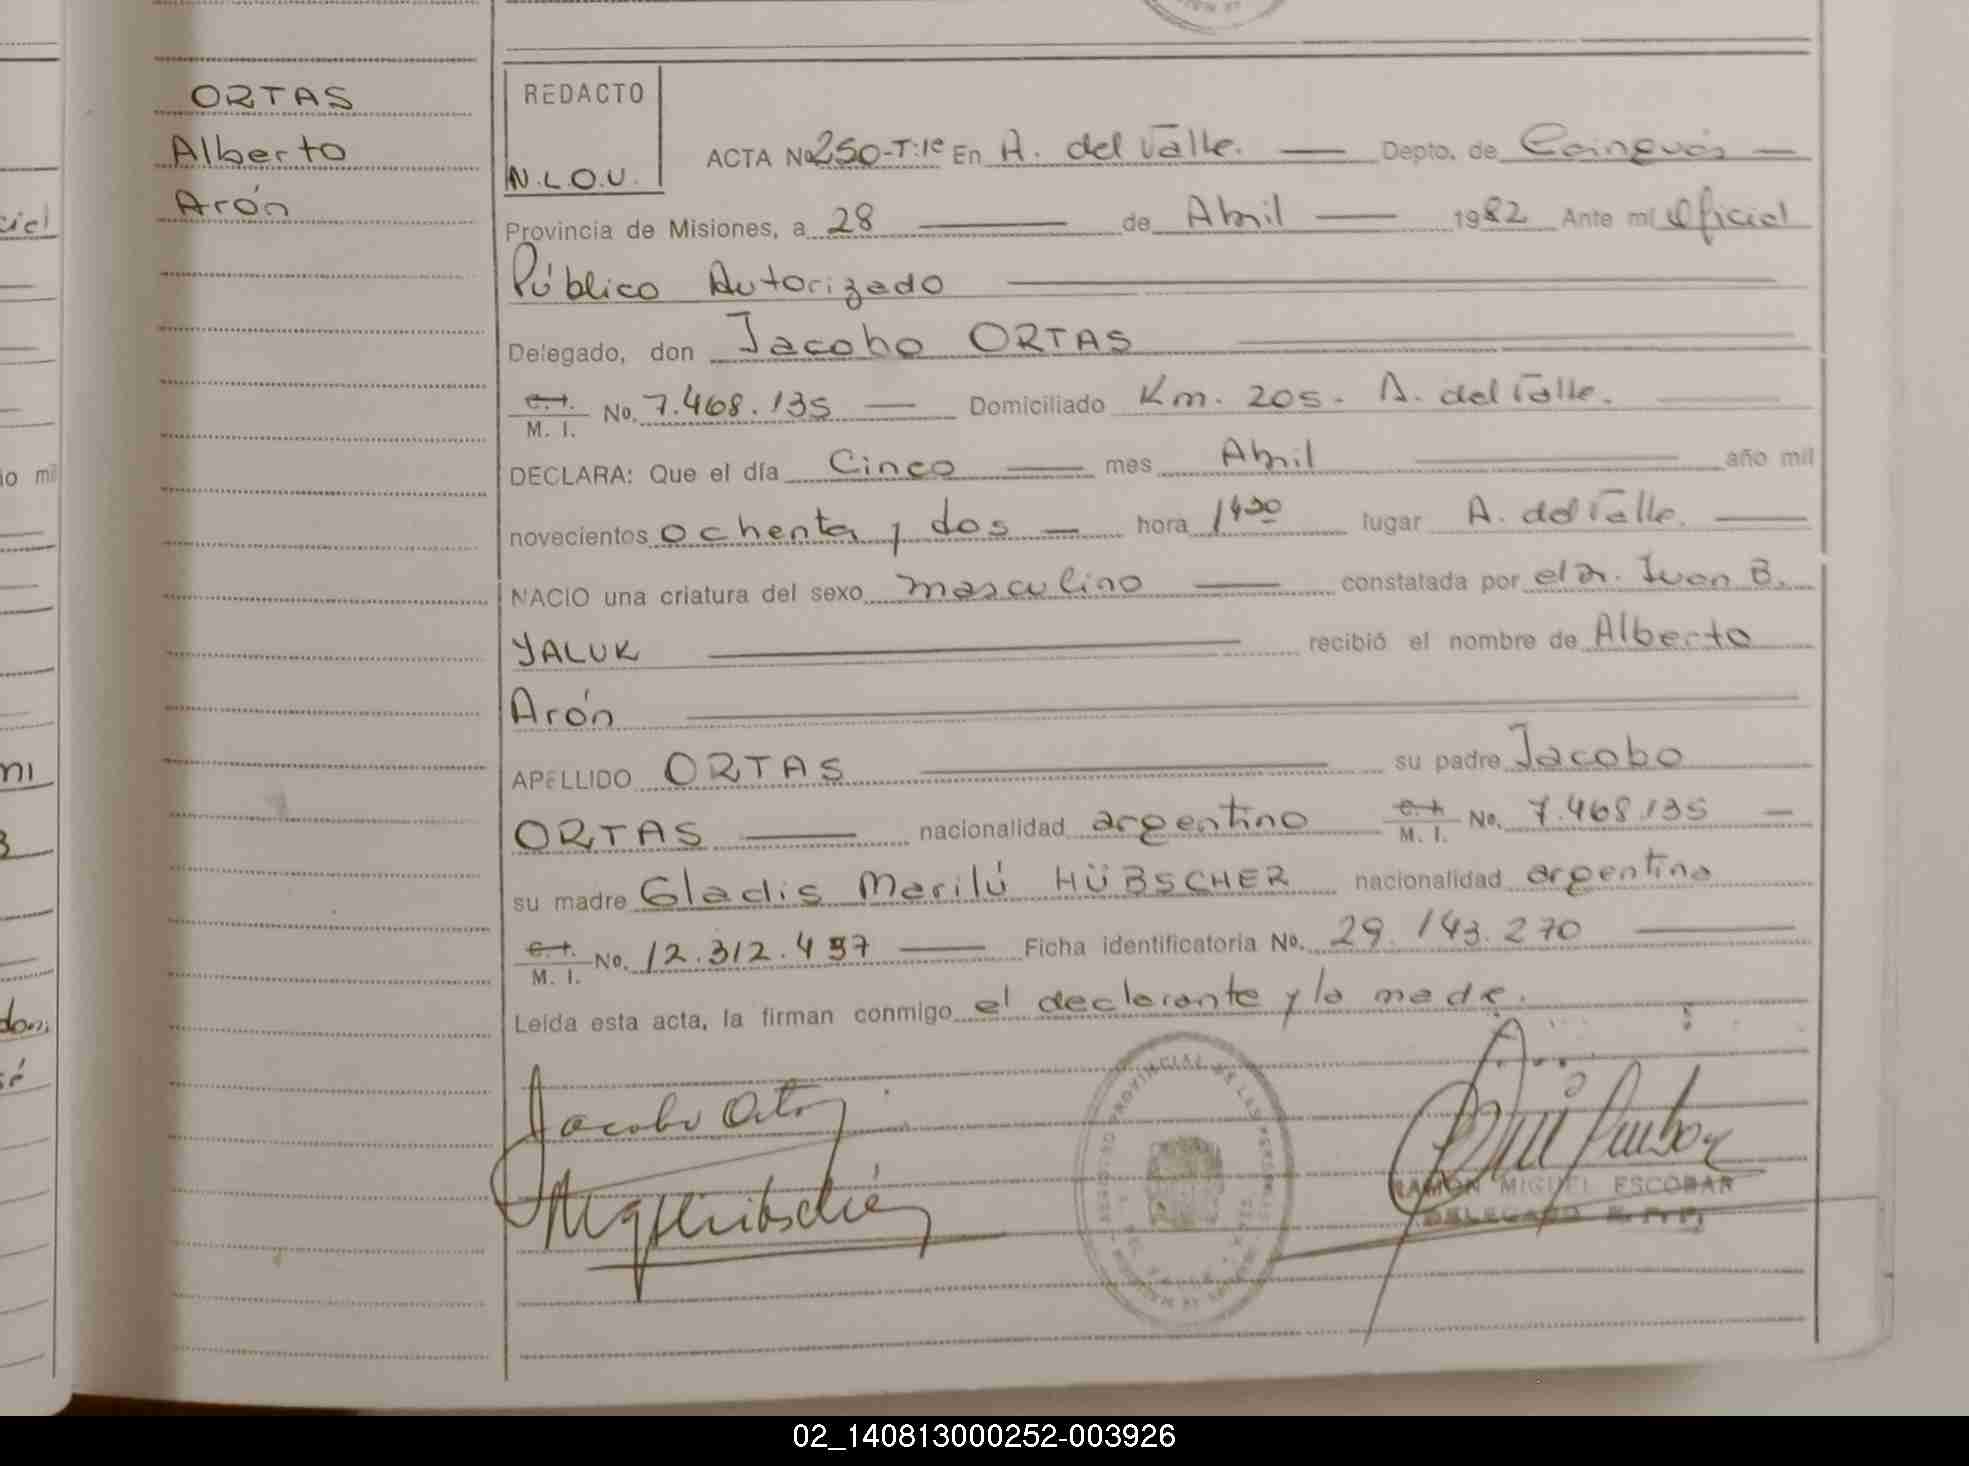 ORTAS
Alberto
Arón
REDACTO
N.L.O.U.
ACTA No 250-T:1º En A. del Valle. — Depto. de Cainguás —
Provincia de Misiones, a 28 — de Abril — 1982 Ante mi Oficial
Público Autorizado
Delegado, don Jacobo ORTAS
C.I. M. I. No. 7.468.135 — Domiciliado Km. 205. A. del Valle.
DECLARA: Que el día Cinco — mes Abril — año mil
novecientos ochenta y dos — hora 1430 lugar A. del Valle. —
NACIO una criatura del sexo masculino — constatada por el Dr. Juan B.
YALUK — recibió el nombre de Alberto
Arón
APELLIDO ORTAS — su padre Jacobo
ORTAS — nacionalidad argentino C.I. M. I. No. 7.468.135 —
su madre Gladis Marilú HÜBSCHER nacionalidad argentina
C.I. M. I. No. 12.312.497 — Ficha identificatoria No. 29.143.270 —
Leída esta acta, la firman conmigo el declarante y la madre.
Jacobo Ortas
REGISTRO PROVINCIAL DE LAS PERSONAS
RAMÓN MIGUEL ESCOBAR
DELEGADO R. P. P.
ciel
io mil
mi
3
don,
sé
02_140813000252-003926